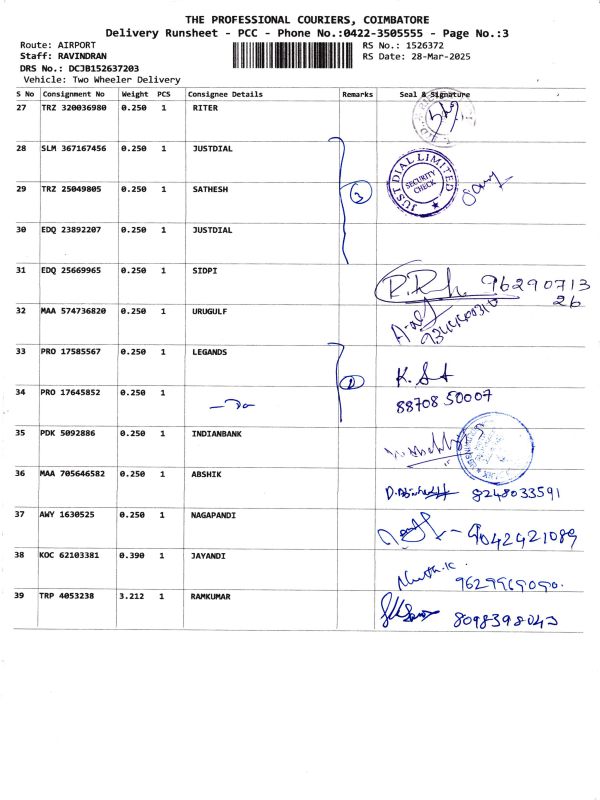 THE PROFESSIONAL COURIERS, COIMBATORE
Delivery Runsheet - PCC - Phone No.:0422-3505555 - Page No.:3
Route: AIRPORT RS No.: 1526372
Staff: RAVINDRAN RS Date: 28-Mar-2025
DRS No.: DCJB152637203
Vehicle: Two Wheeler Delivery
S No Consignment No Weight PCS Consignee Details Remarks Seal & Signature
27 TRZ 320036980 0.250 1 RITER
28 SLM 367167456 0.250 1 JUSTDIAL
JUST DIAL LIMITED
SECURITY CHECK
29 TRZ 25049805 0.250 1 SATHESH 3
30 EDQ 23892207 0.250 1 JUSTDIAL
31 EDQ 25669965 0.250 1 SIDPI 96290713
26
32 MAA 574736820 0.250 1 URUGULF
33 PRO 17585567 0.250 1 LEGANDS
34 PRO 17645852 0.250 1 88708 50007
35 PDK 5092886 0.250 1 INDIANBANK
36 MAA 705646582 0.250 1 ABSHIK 8248033591
37 AWY 1630525 0.250 1 NAGAPANDI 9042421089
38 KOC 62103381 0.390 1 JAYANDI
39 TRP 4053238 3.212 1 RAMKUMAR 8098398043